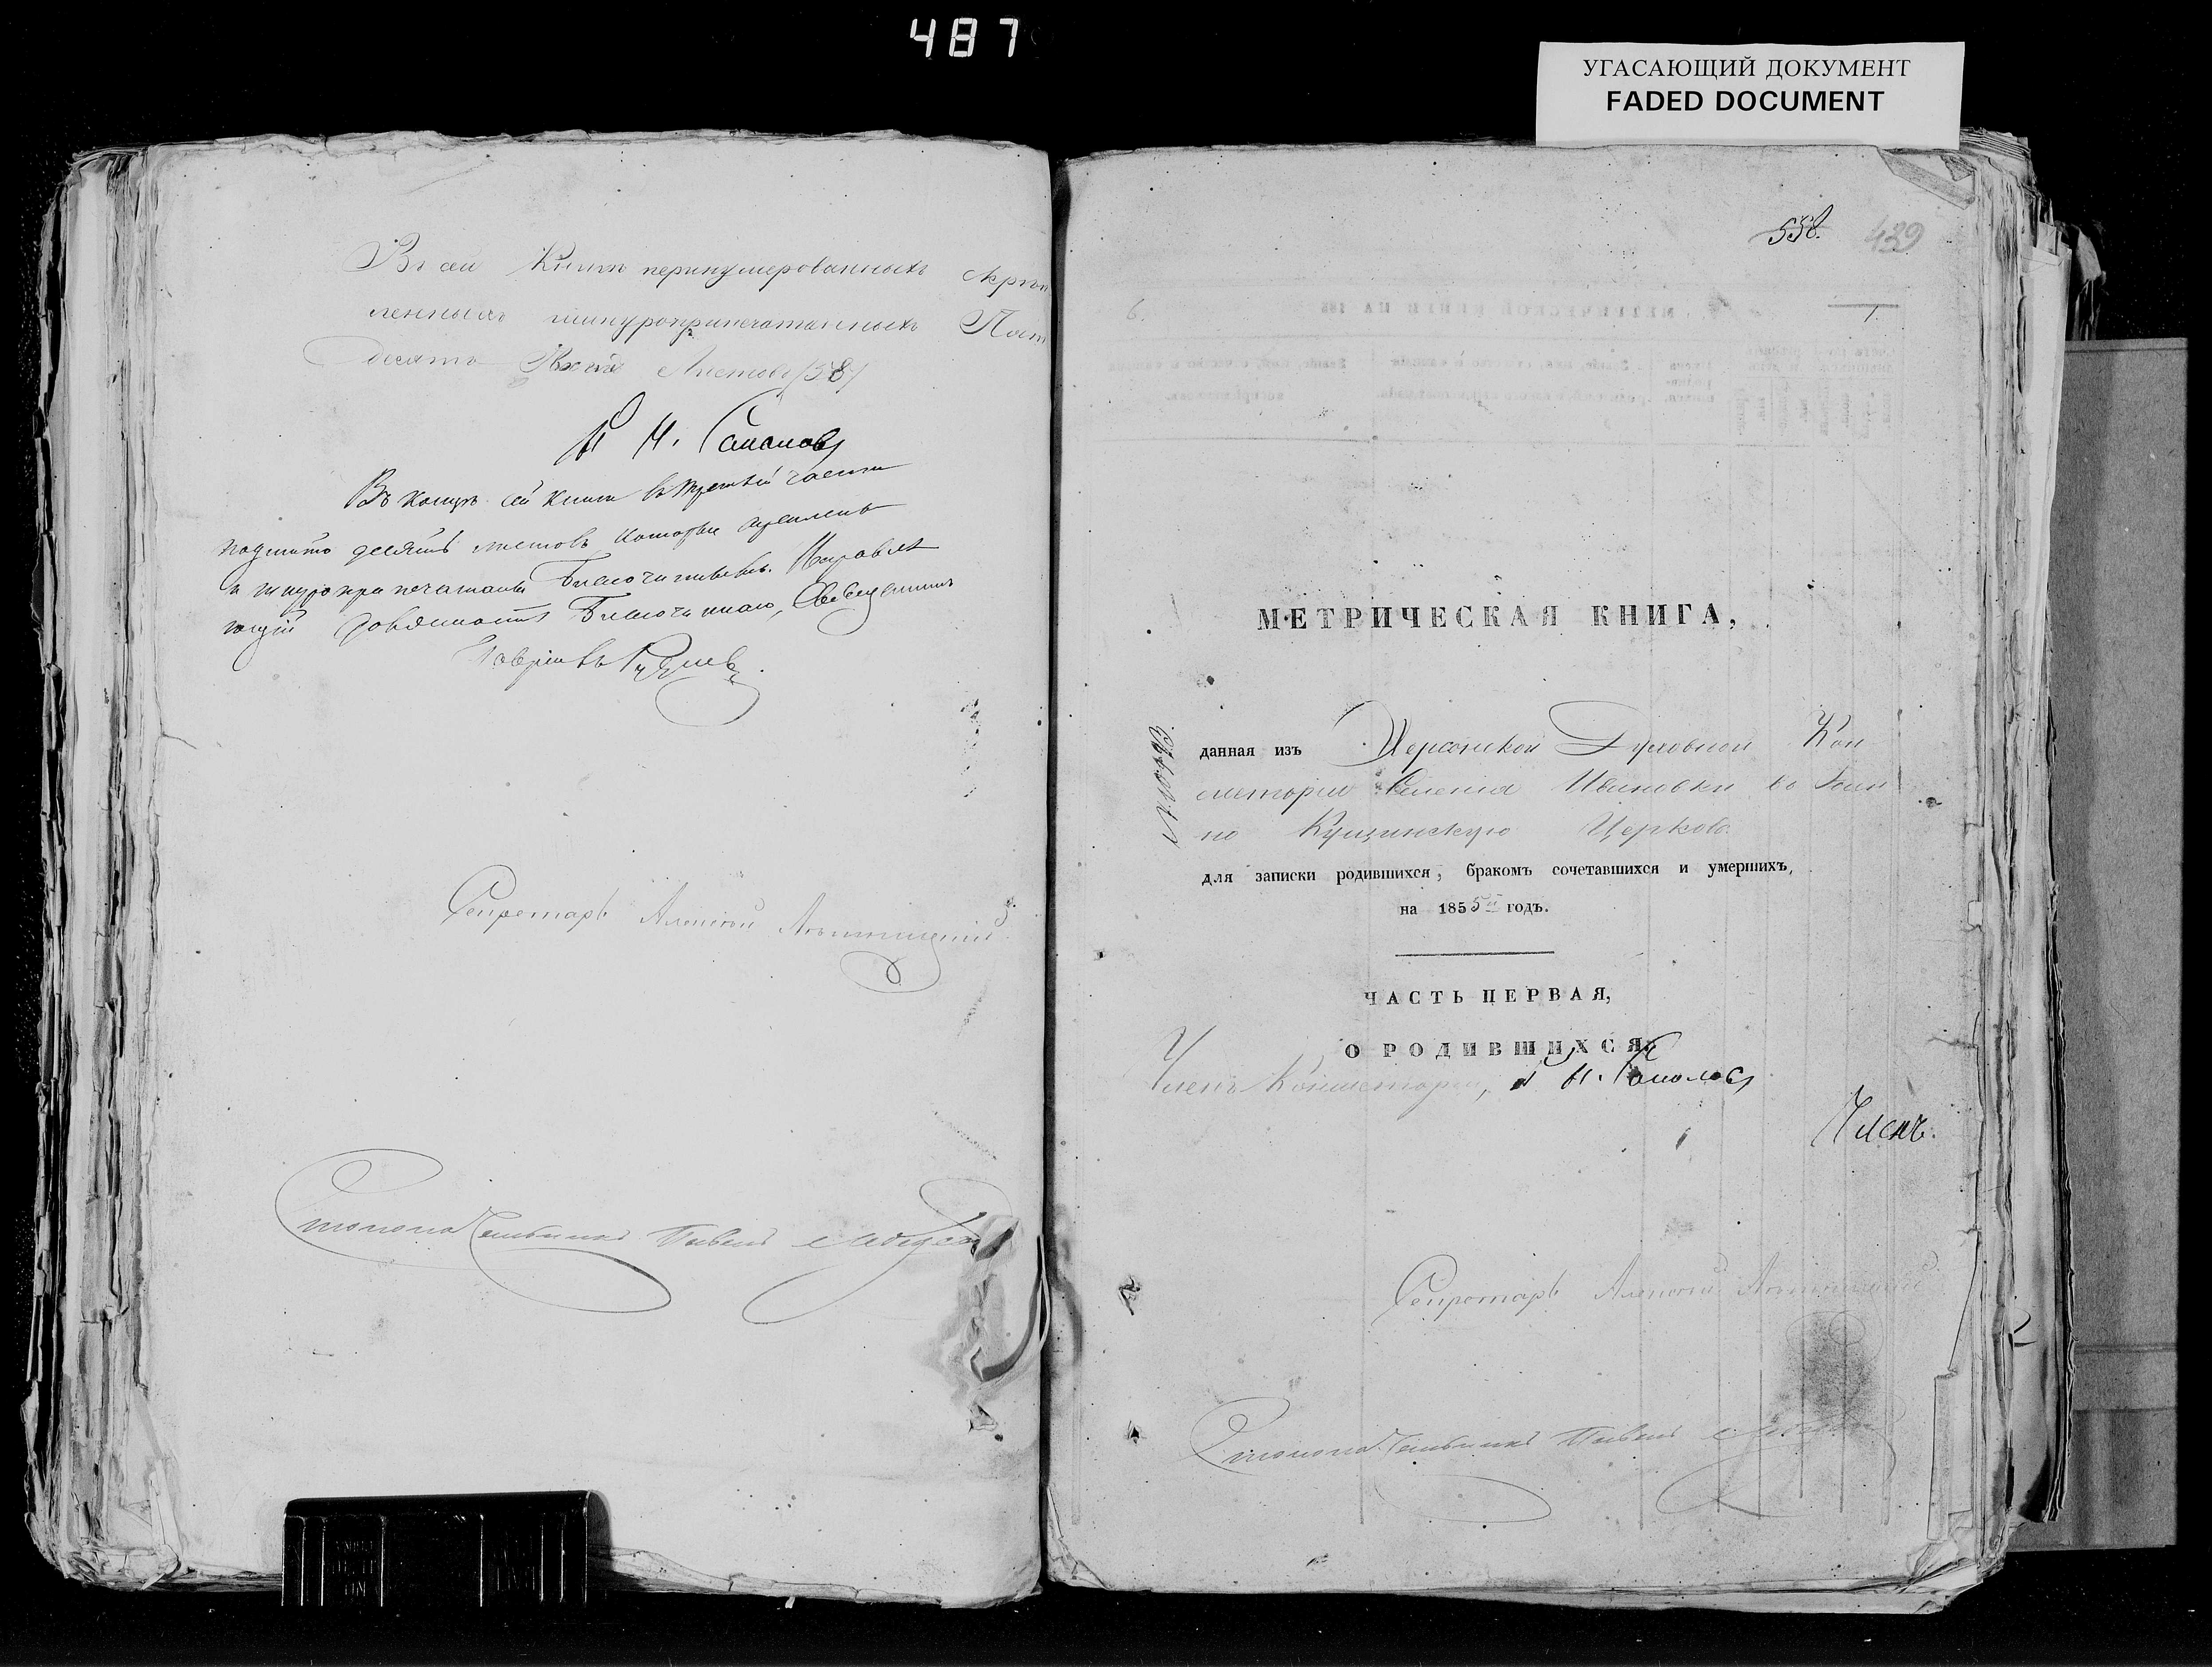 487
УГАСАЮЩИЙ ДОКУМЕНТ
FADED DOCUMENT
Въ сей Книгѣ перенумерованныхъ скрѣп
ленныхъ шнуроприпечатанныхъ Пять
десятъ Листовъ /58/
Въ концѣ сей книги въ третьей части
подшито десять листовъ которые
и шнуроприпечатаны Благочиннымъ. Исправля
ющій должность Благочиннаго, Священникъ
Гавріилъ
Секретарь Алексѣй
Столоначальникъ Павелъ
558.
439
1
МЕТРИЧЕСКАЯ КНИГА,
данная изъ Херсонской Духовной Кон
систоріи Селенія Ивановки во
но Кущинскую Церковь
для записки родившихся, бракомъ сочетавшихся и умершихъ,
на 1855й годъ.
ЧАСТЬ ПЕРВАЯ,
О РОДИВШИХСЯ.
Членъ Консисторіи,
Членъ.
Секретарь Алексѣй
Столоначальникъ Павелъ